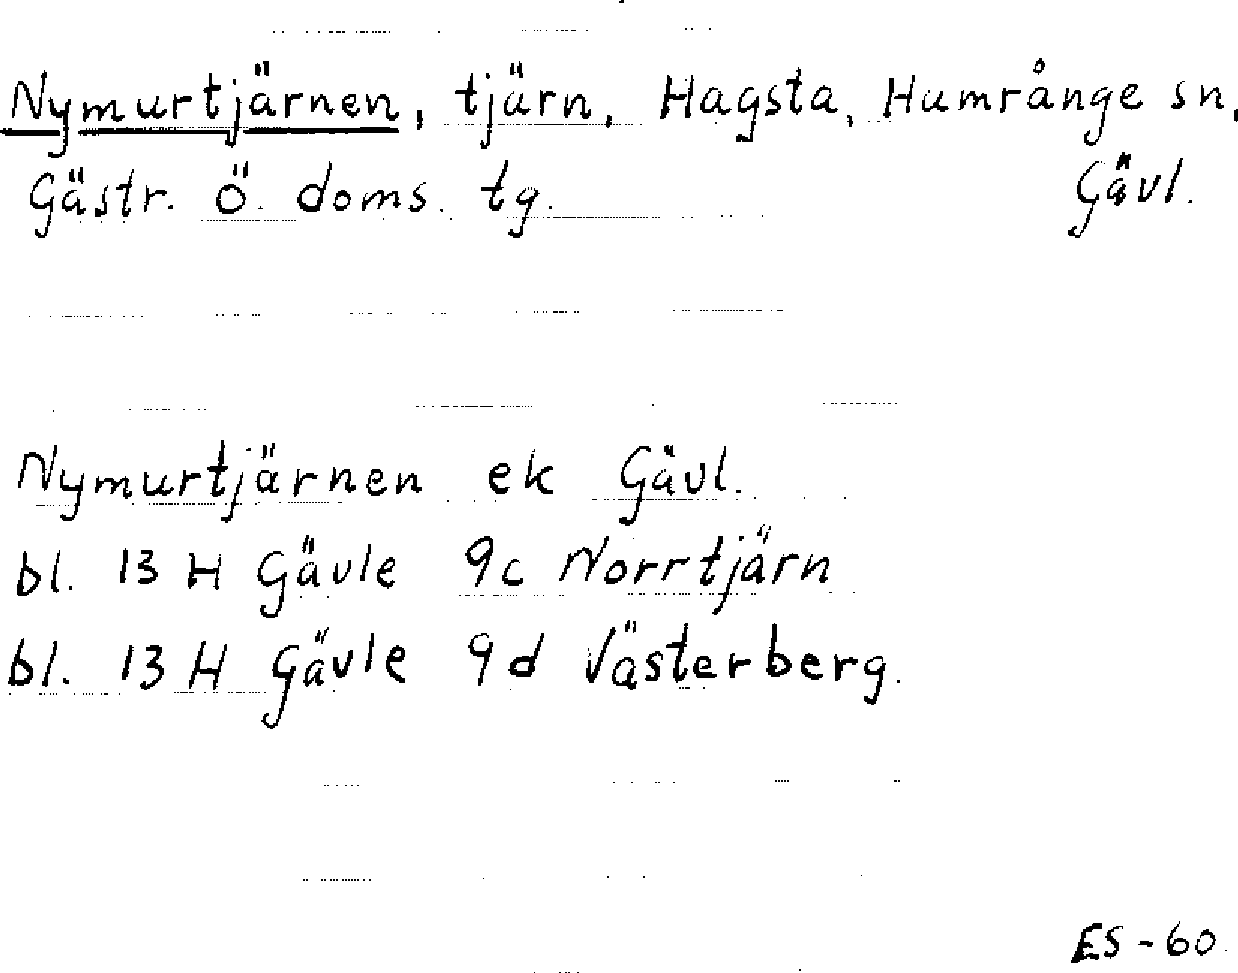 Nymurtjärnen, tjärn, Hagsta, Hamrånge sn,
Gästr. Ö. doms. tg. Gävl.
Nymurtjärnen ek Gävl.
bl. 13 H Gävle 9c Norrtjärn
bl. 13 H Gävle 9d Västerberg.
ES-60